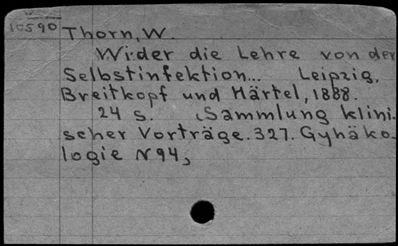 10590
Thorn, W.
Wider die Lehre von der
Selbstinfektion... Leipzig,
Breitkopf und Härtel, 1888.
24 s. (Sammlung klini-
scher Vorträge. 327. Gynäko-
logie N 94,